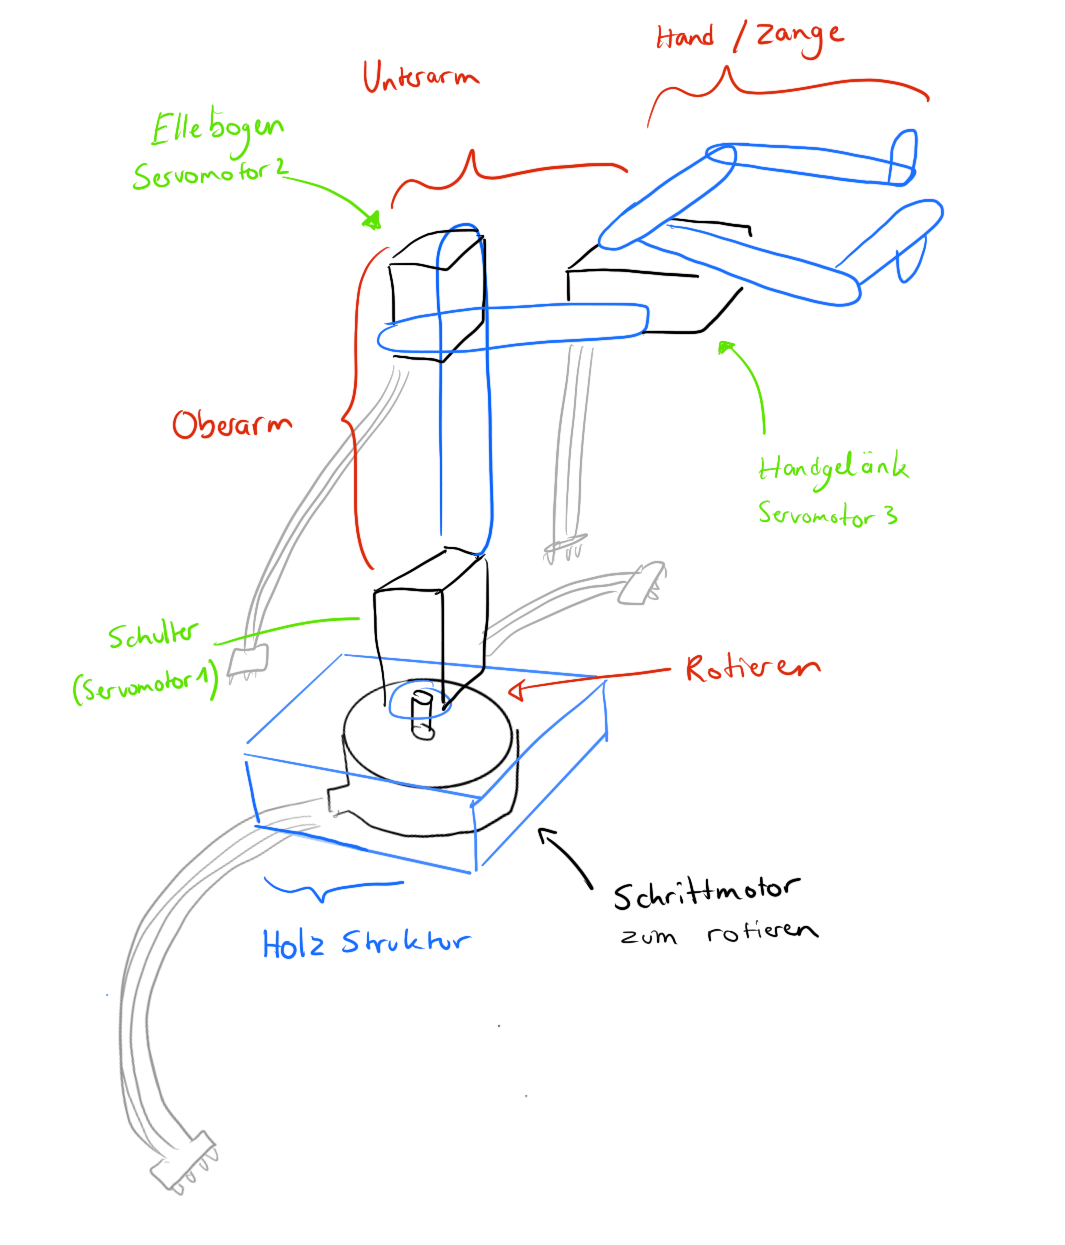 Hand / Zange
Unterarm
Ellebogen
Servomotor 2
Oberarm
Handgelänk
Servomotor 3
Schulter
(Servomotor 1)
Rotieren
Schrittmotor
zum rotieren
Holz Struktur